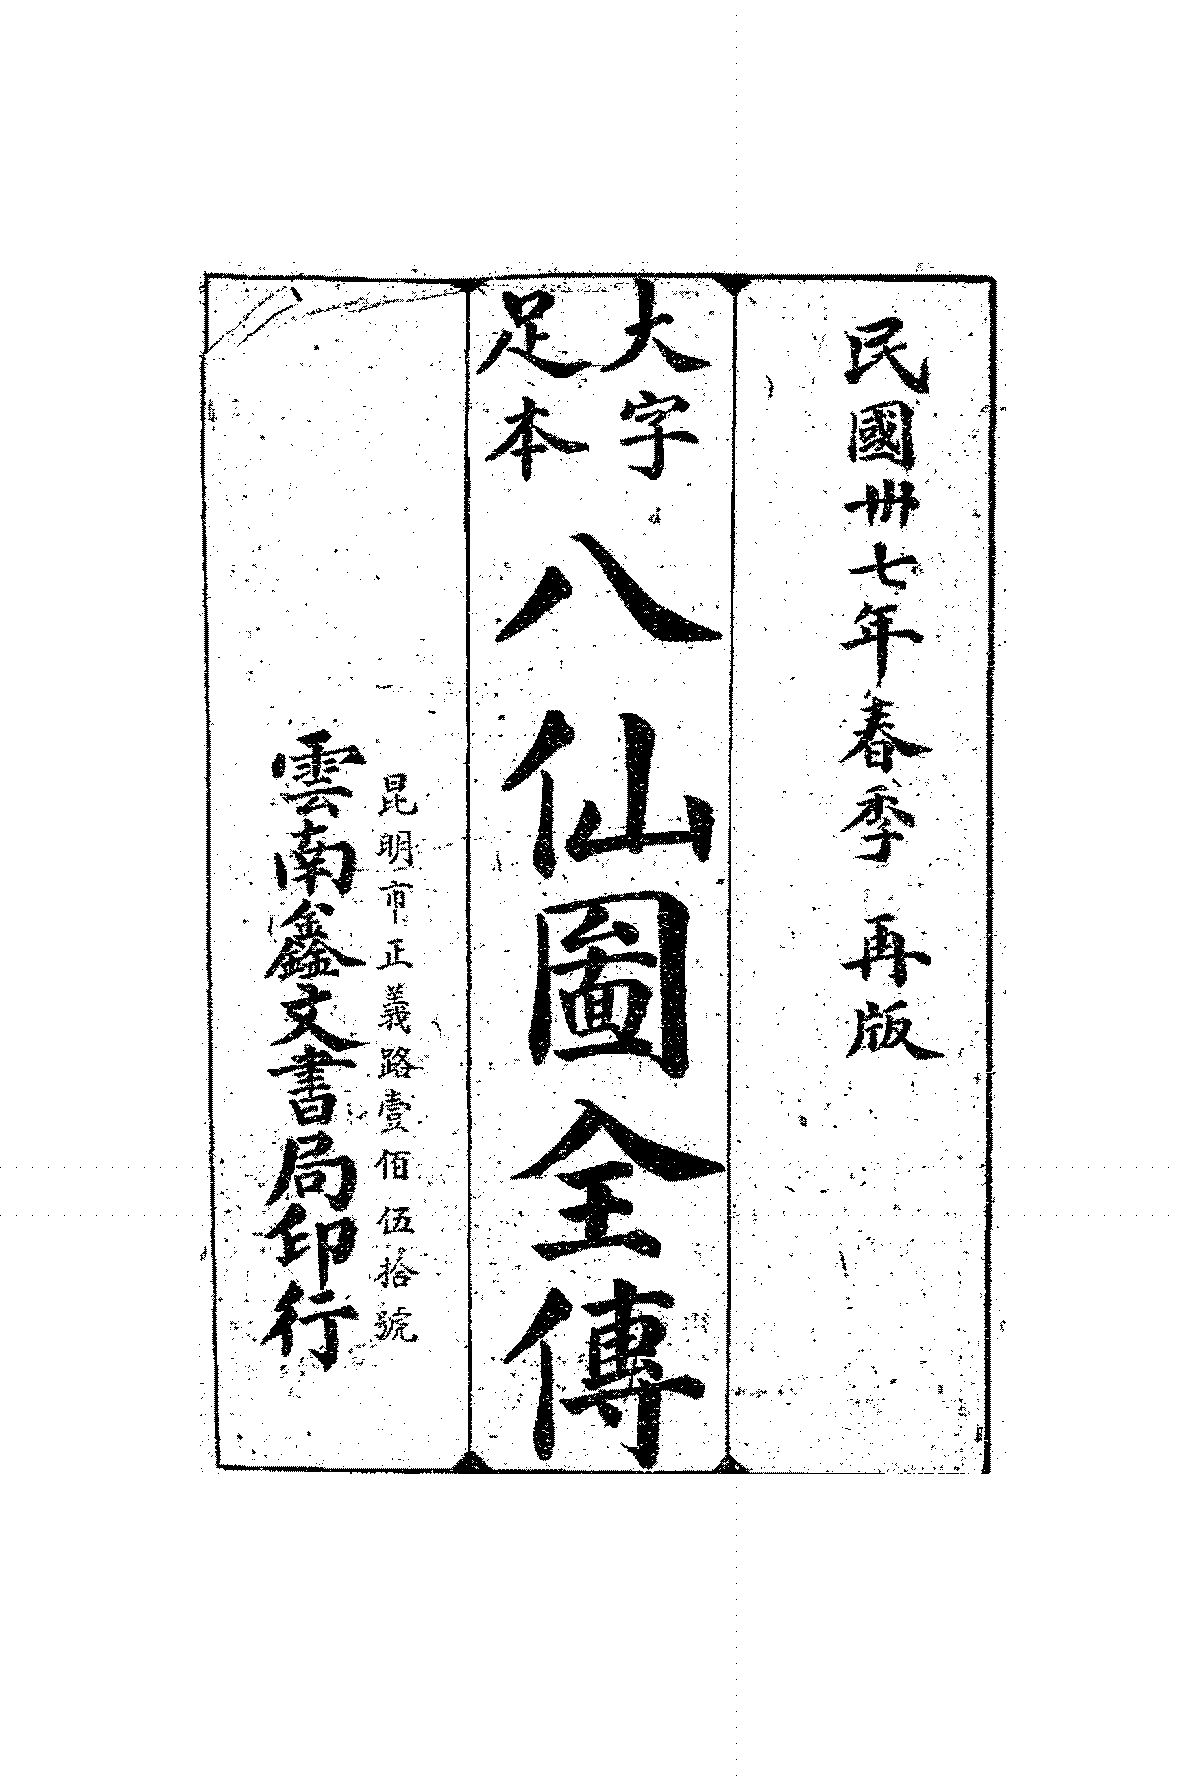 民國卅七年春季 再版
大字
足本
八仙圖全傳
昆明市正義路壹佰伍拾號
雲南鑫文書局印行